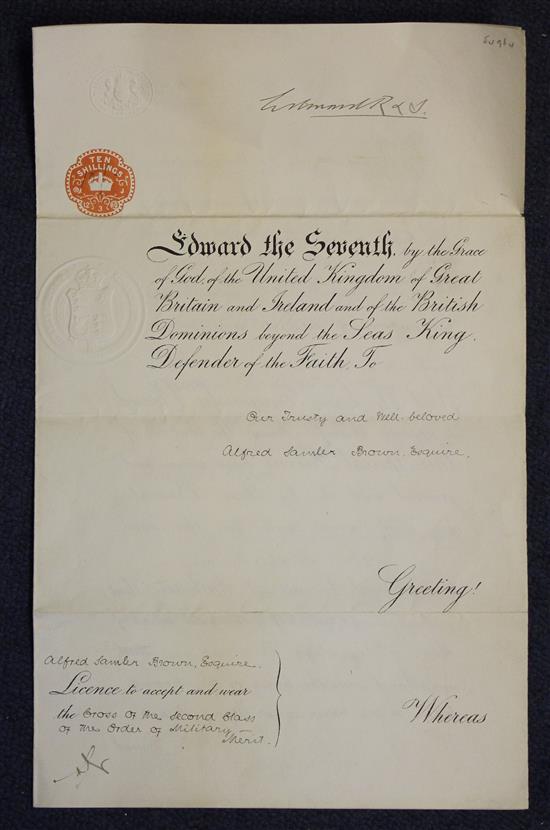 TEN
SHILLINGS
Edward the Seventh, by the Grace
of God, of the United Kingdom of Great
Britain and Ireland and of the British
Dominions beyond the Seas King,
Defender of the Faith, To
Our Trusty and Well-beloved
Alfred Samler Brown, Esquire,
Greeting!
Alfred Samler Brown, Esquire.
Licence to accept and wear
the Cross of the Second Class
of the Order of Military
Merit.
Whereas